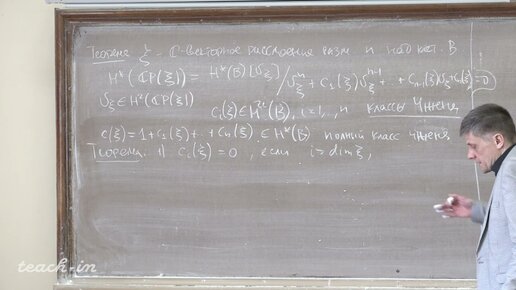 Теорема ξ - ℂ-векторное расслоение разм n над B
H*(ℂP(ξ)) = H*(B)[υ_ξ] / υ_ξ^n + c₁(ξ)υ_ξ^{n-1} + ... + c_{n-1}(ξ)υ_ξ + c_n(ξ) = 0
υ_ξ ∈ H²(ℂP(ξ)) c_i(ξ) ∈ H^{2i}(B), i=1,..,n классы Чженя
c(ξ) = 1 + c₁(ξ) + .. + c_n(ξ) ∈ H*(B) полный класс Чженя
Теорема 1) c_i(ξ) = 0, если i > dim ξ,
teach-in